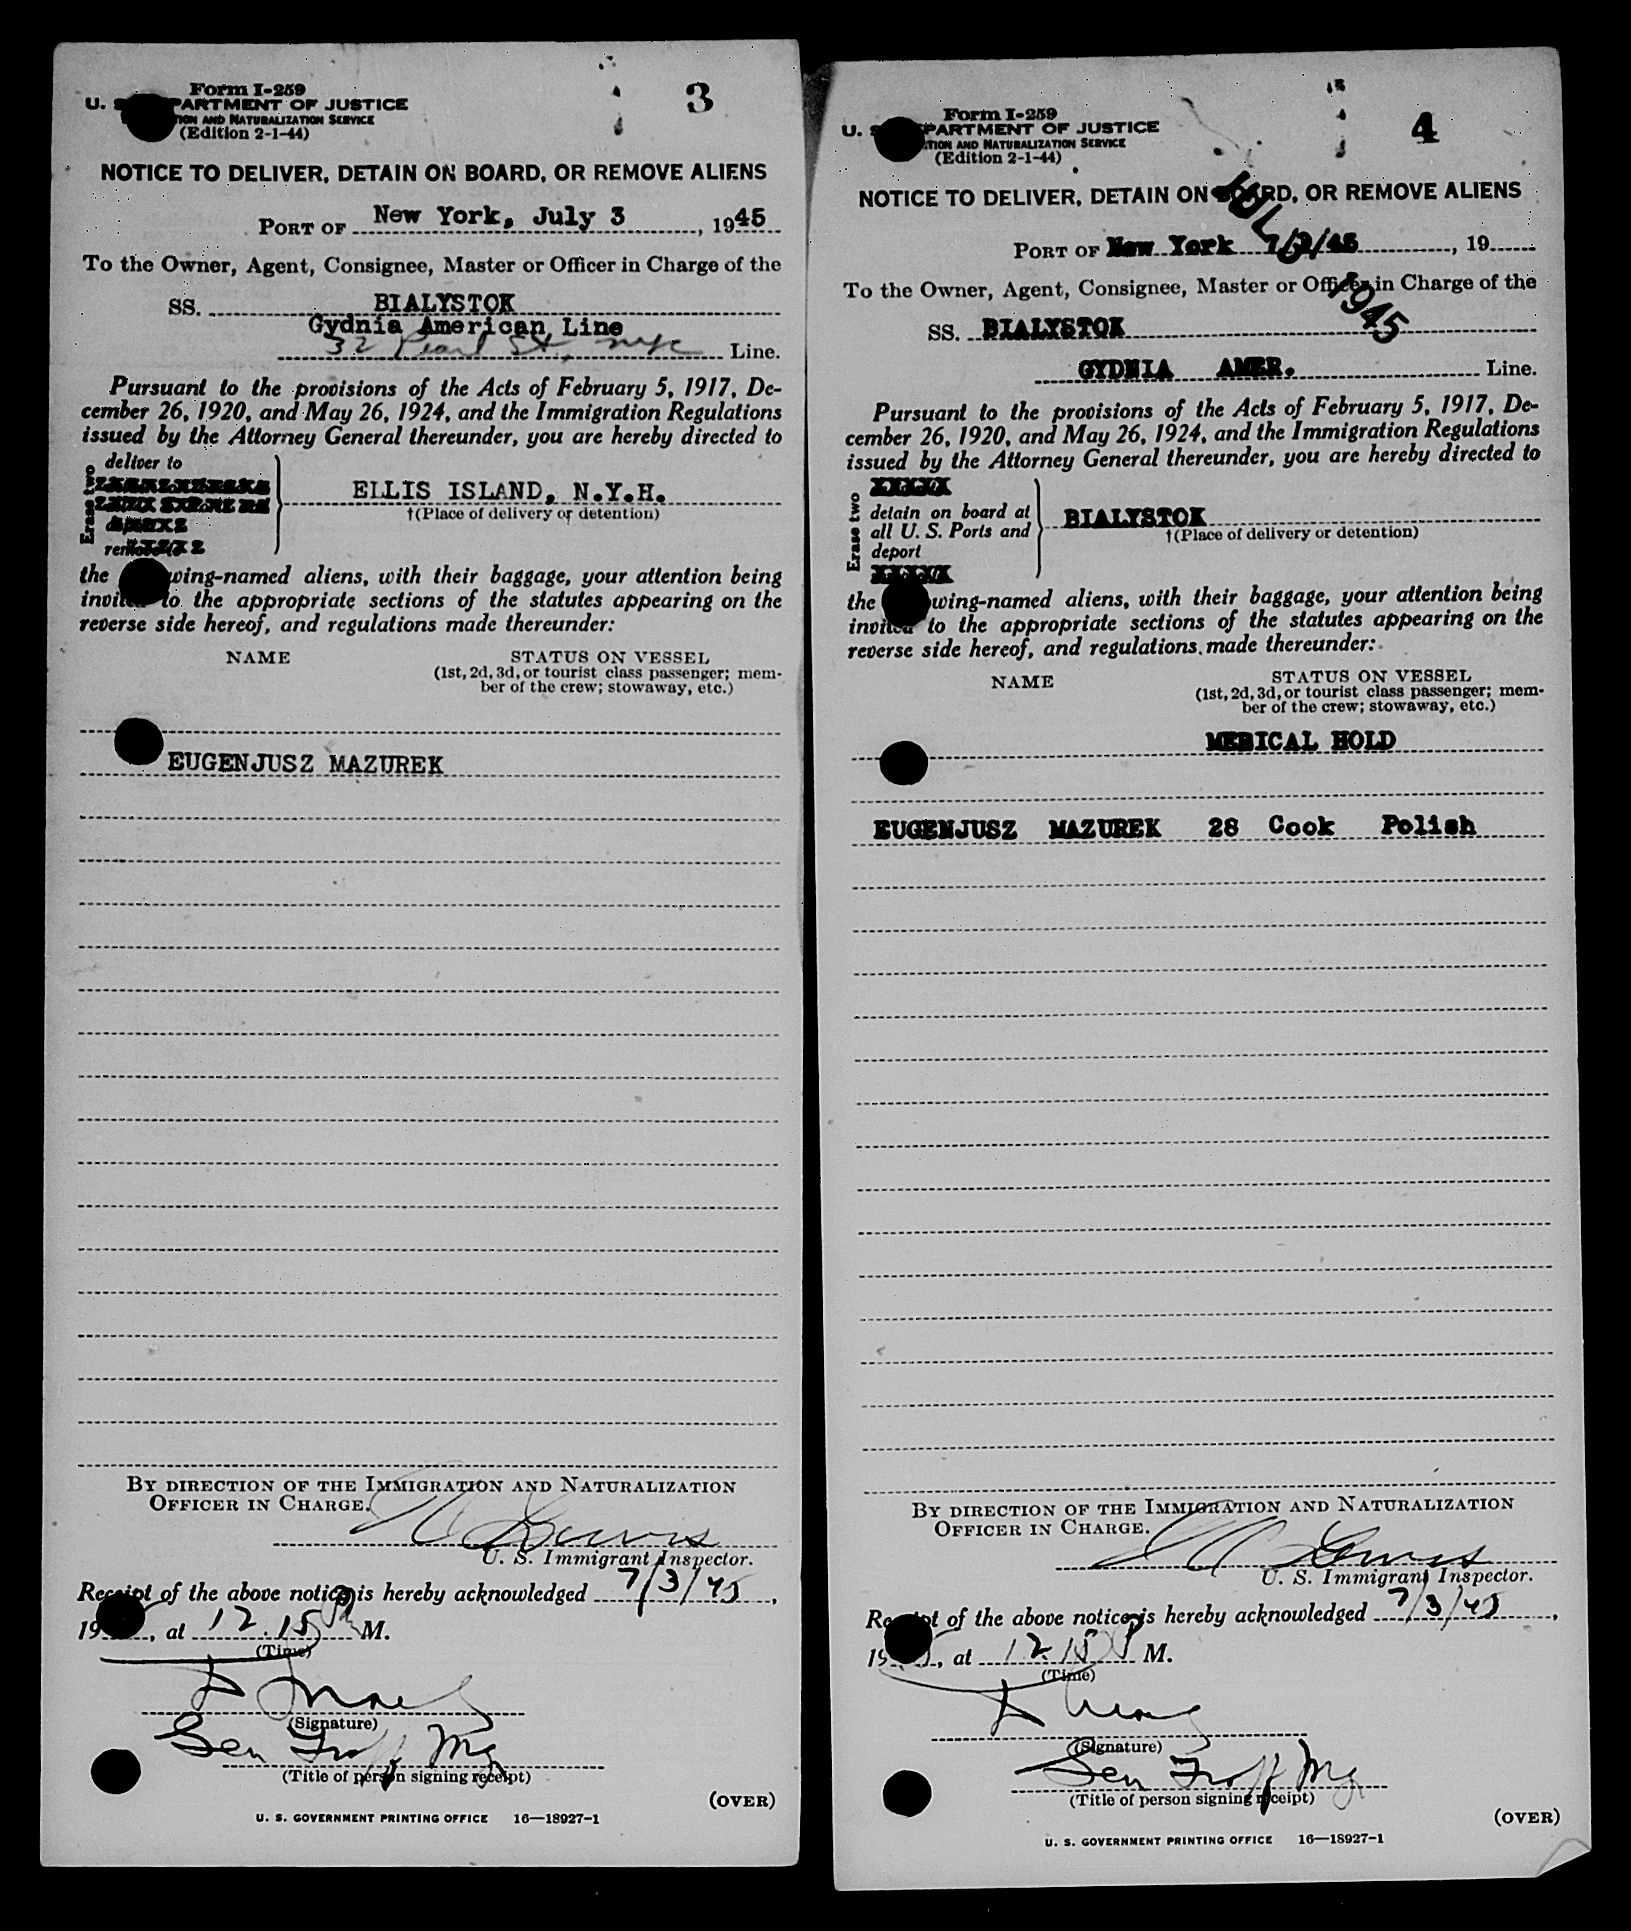 Form I-259
U. S. DEPARTMENT OF JUSTICE
AND NATURALIZATION SERVICE
(Edition 2-1-44)
3
NOTICE TO DELIVER, DETAIN ON BOARD, OR REMOVE ALIENS
PORT OF New York, July 3, 1945
To the Owner, Agent, Consignee, Master or Officer in Charge of the
SS. BIALYSTOK
Gydnia American Line
32 Pearl St., nyc Line.
Pursuant to the provisions of the Acts of February 5, 1917, De-
cember 26, 1920, and May 26, 1924, and the Immigration Regulations
issued by the Attorney General thereunder, you are hereby directed to
Erase two
deliver to
ELLIS ISLAND, N.Y.H.
†(Place of delivery or detention)
the following-named aliens, with their baggage, your attention being
invited to the appropriate sections of the statutes appearing on the
reverse side hereof, and regulations made thereunder:
NAME STATUS ON VESSEL
(1st, 2d, 3d, or tourist class passenger; mem-
ber of the crew; stowaway, etc.)
EUGENJUSZ MAZUREK
BY DIRECTION OF THE IMMIGRATION AND NATURALIZATION
OFFICER IN CHARGE.
U. S. Immigrant Inspector.
Receipt of the above notice is hereby acknowledged 7/3/45,
19, at 12.15 P M.
(Time)
(Signature)
Gen Traff Mgr
(Title of person signing receipt)
(OVER)
U. S. GOVERNMENT PRINTING OFFICE 16—18927-1
Form I-259
U. S. DEPARTMENT OF JUSTICE
AND NATURALIZATION SERVICE
(Edition 2-1-44)
4
NOTICE TO DELIVER, DETAIN ON BOARD, OR REMOVE ALIENS
JUL 3 1945
PORT OF New York 7/3/45, 19
To the Owner, Agent, Consignee, Master or Officer in Charge of the
SS. BIALYSTOK
GYDNIA AMER. Line.
Pursuant to the provisions of the Acts of February 5, 1917, De-
cember 26, 1920, and May 26, 1924, and the Immigration Regulations
issued by the Attorney General thereunder, you are hereby directed to
Erase two
XXXXX
detain on board at
all U. S. Ports and
deport
XXXXX
BIALYSTOK
†(Place of delivery or detention)
the following-named aliens, with their baggage, your attention being
invited to the appropriate sections of the statutes appearing on the
reverse side hereof, and regulations made thereunder:
NAME STATUS ON VESSEL
(1st, 2d, 3d, or tourist class passenger; mem-
ber of the crew; stowaway, etc.)
MEDICAL HOLD
EUGENJUSZ MAZUREK 28 Cook Polish
BY DIRECTION OF THE IMMIGRATION AND NATURALIZATION
OFFICER IN CHARGE.
U. S. Immigrant Inspector.
Receipt of the above notice is hereby acknowledged 7/3/45,
19, at 12 15 P M.
(Time)
(Signature)
Gen Traff Mgr
(Title of person signing receipt)
(OVER)
U. S. GOVERNMENT PRINTING OFFICE 16—18927-1